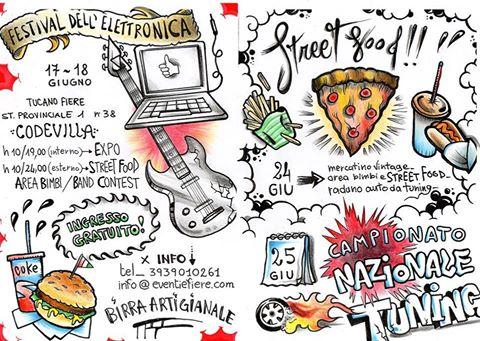 FESTIVAL DELL'ELETTRONICA
17~18
GIUGNO
TUCANO FIERE
ST. PROVINCIALE 1 n°38
CODEVILLA
h 10/19,00 (interno)→ EXPO
h 10/24,00 (esterno)→ STREET FOOD
AREA BIMBI/BAND CONTEST
INGRESSO
GRATUITO!
COKE
× INFO↓
tel__ 3939010261
info@eventiefiere.com
BIRRA ARTIGIANALE
Street food!!
24
GIU
mercatino vintage
area bimbi e STREET FOOD
raduno auto da tuning
25
GIU
CAMPIONATO
NAZIONALE
TUNING